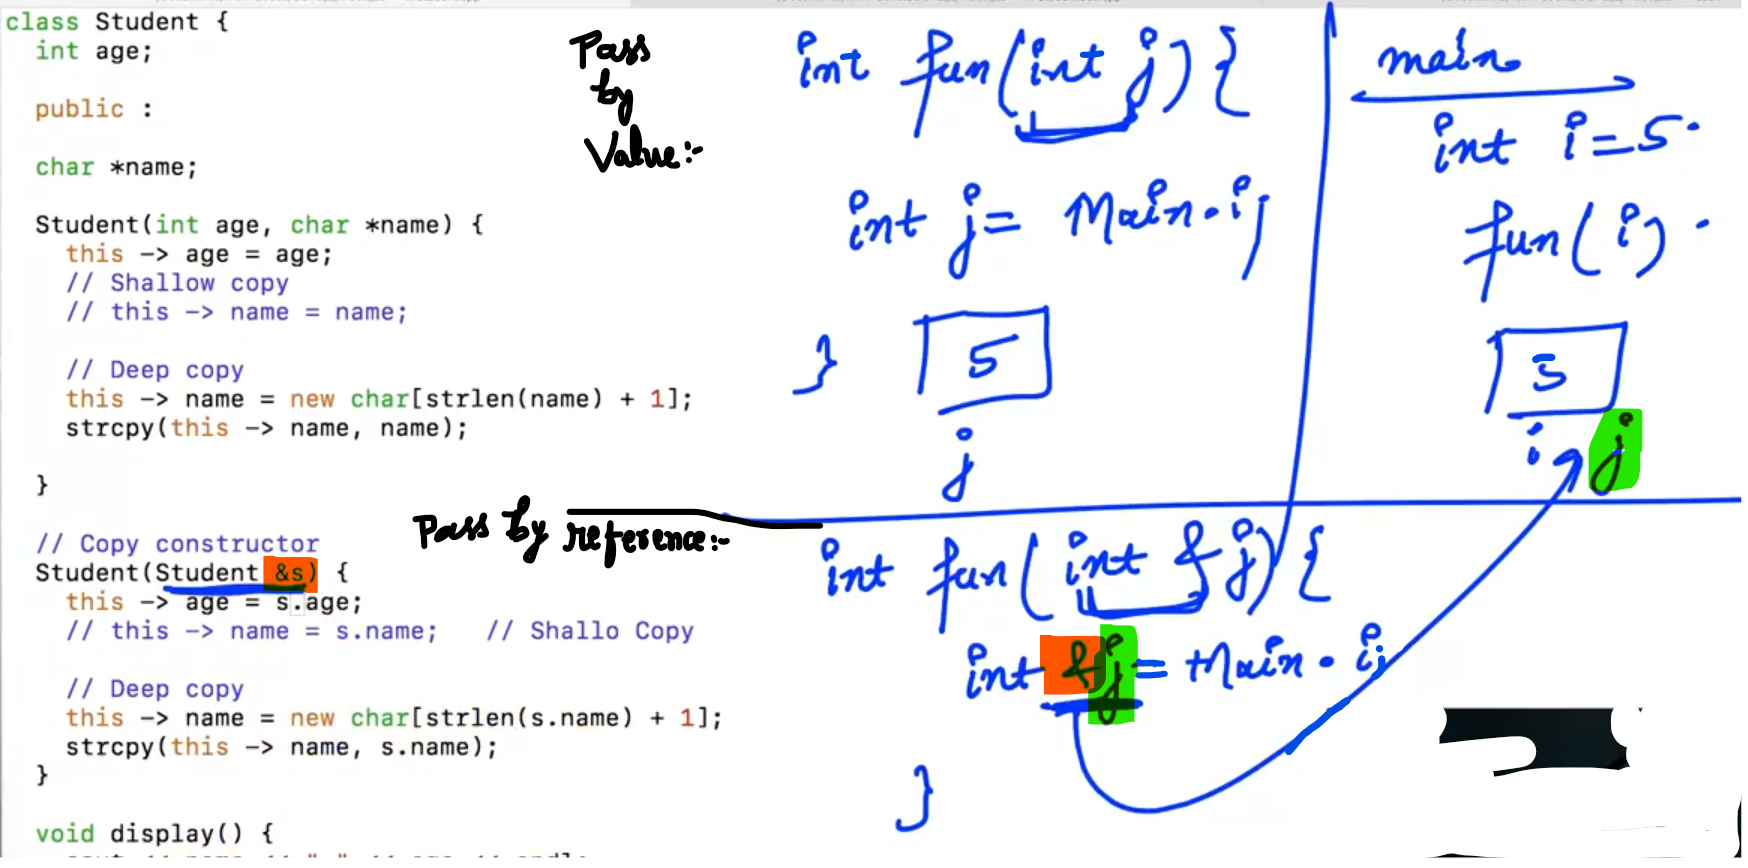 class Student {
int age;
public :
char *name;
Student(int age, char *name) {
this -> age = age;
// Shallow copy
// this -> name = name;
// Deep copy
this -> name = new char[strlen(name) + 1];
strcpy(this -> name, name);
}
// Copy constructor
Student(Student &s) {
this -> age = s.age;
// this -> name = s.name;   // Shallo Copy
// Deep copy
this -> name = new char[strlen(s.name) + 1];
strcpy(this -> name, s.name);
}
void display() {
Pass
by
Value:-
int fun(int j) {
int j = Main.i;
}
5
j
main
int i = 5.
fun(i).
5
i j
Pass by reference:-
int fun(int &j) {
int &j = Main.i;
}